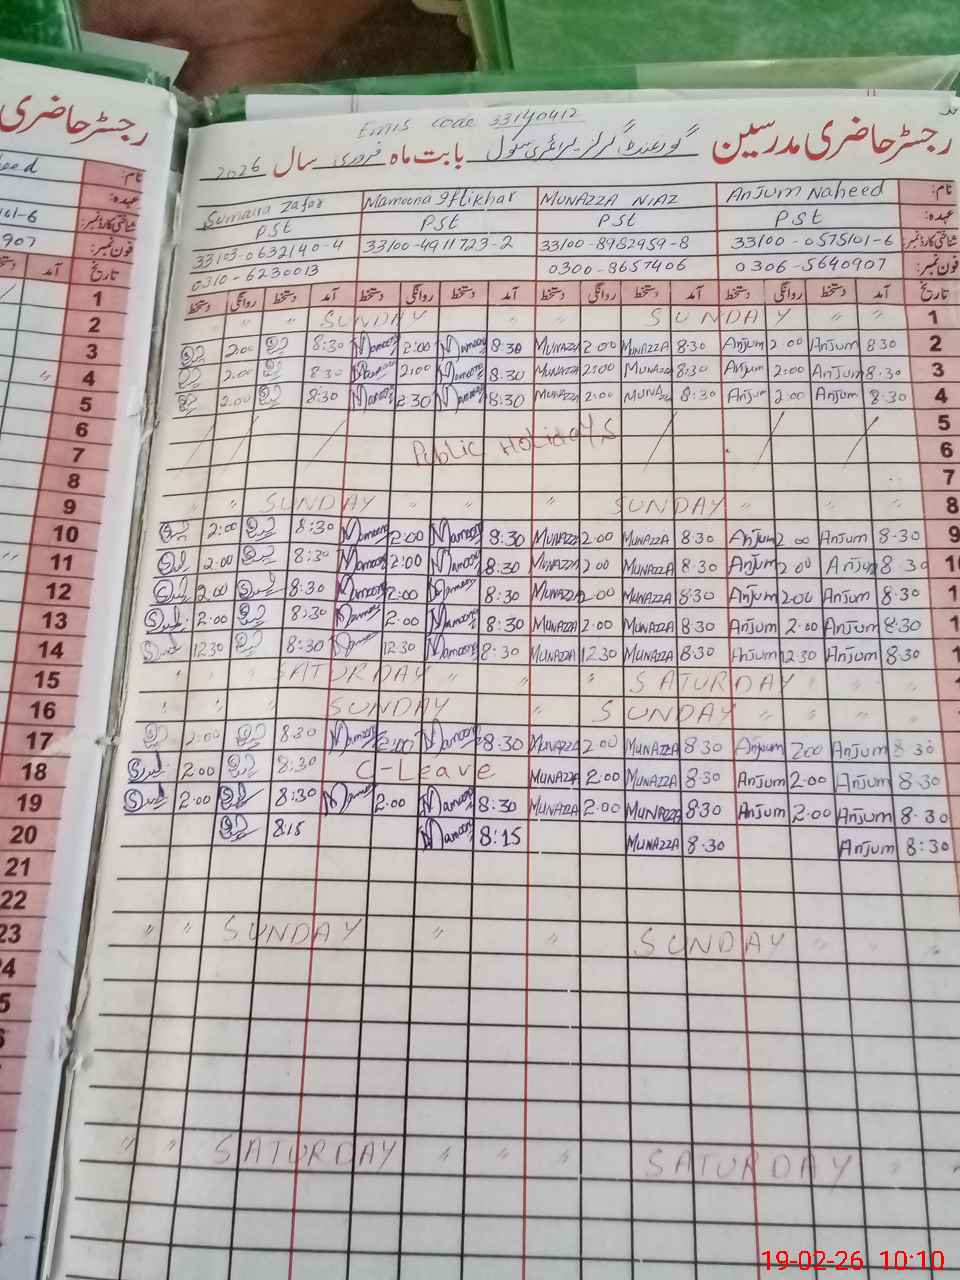 Emis code 33140412
رجسٹر حاضری مدرسین گورنمنٹ گرلز پرائمری سکول بابت ماہ فروری سال 2026
نام: Anjum Naheed MUNAZZA NIAZ Mamoona Iftikhar Sumaira Zafar
عہدہ: PSt PSt PSt PSt
شناختی کارڈ نمبر: 33100-0575101-6 33100-8982959-8 33100-4911723-2 33103-0632140-4
فون نمبر: 0306-5640907 0300-8657406 0310-6230013
تاریخ آمد دستخط روانگی دستخط آمد دستخط روانگی دستخط آمد دستخط روانگی دستخط آمد دستخط روانگی دستخط
1 " " SUNDAY " " SUNDAY " "
2 8:30 Anjum 2:00 Anjum 8:30 MUNAZZA 2:00 MUNAZZA 8:30 Mamoona 2:00 Mamoona 8:30 2:00
3 8:30 Anjum 2:00 Anjum 8:30 MUNAZZA 2:00 MUNAZZA 8:30 Mamoona 2:00 Mamoona 8:30 2:00
4 8:30 Anjum 2:00 Anjum 8:30 MUNAZZA 2:00 MUNAZZA 8:30 Mamoona 2:30 Mamoona 8:30 2:00
5
6 Public Holidays
7
8 " " SUNDAY " " SUNDAY " "
9 8:30 Anjum 2:00 Anjum 8:30 MUNAZZA 2:00 MUNAZZA 8:30 Mamoona 2:00 Mamoona 8:30 2:00
8:30 Anjum 2:00 Anjum 8:30 MUNAZZA 2:00 MUNAZZA 8:30 Mamoona 2:00 Mamoona 8:30 2:00
8:30 Anjum 2:00 Anjum 8:30 MUNAZZA 2:00 MUNAZZA 8:30 Mamoona 2:00 Mamoona 8:30 2:00
8:30 Anjum 2:00 Anjum 8:30 MUNAZZA 2:00 MUNAZZA 8:30 Mamoona 2:00 Mamoona 8:30 2:00
8:30 Anjum 12:30 Anjum 8:30 MUNAZZA 12:30 MUNAZZA 8:30 Mamoona 12:30 8:30 12:30
" " SATURDAY " " SATURDAY " "
" " SUNDAY " SUNDAY " "
8:30 Anjum 2:00 Anjum 8:30 MUNAZZA 2:00 MUNAZZA 8:30 Mamoona 2:00 Mamoona 8:30 2:00
8:30 Anjum 2:00 Anjum 8:30 MUNAZZA 2:00 MUNAZZA C-Leave 8:30 2:00
8:30 Anjum 2:00 Anjum 8:30 MUNAZZA 2:00 MUNAZZA 8:30 Mamoona 2:00 8:30 2:00
8:30 Anjum 8:30 MUNAZZA 8:15 Mamoona 8:15
" " SUNDAY " " SUNDAY " "
" " SATURDAY " " " SATURDAY " "
رجسٹر حاضری
نام:
عہدہ:
شناختی کارڈ نمبر:
فون نمبر:
تاریخ آمد
1
2
3
4
5
6
7
8
9
10
11
12
13
14
15
16
17
18
19
20
21
22
23
19-02-26 10:10